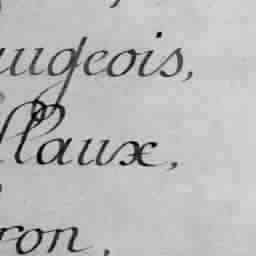 ugeois,
llaux,
ron.